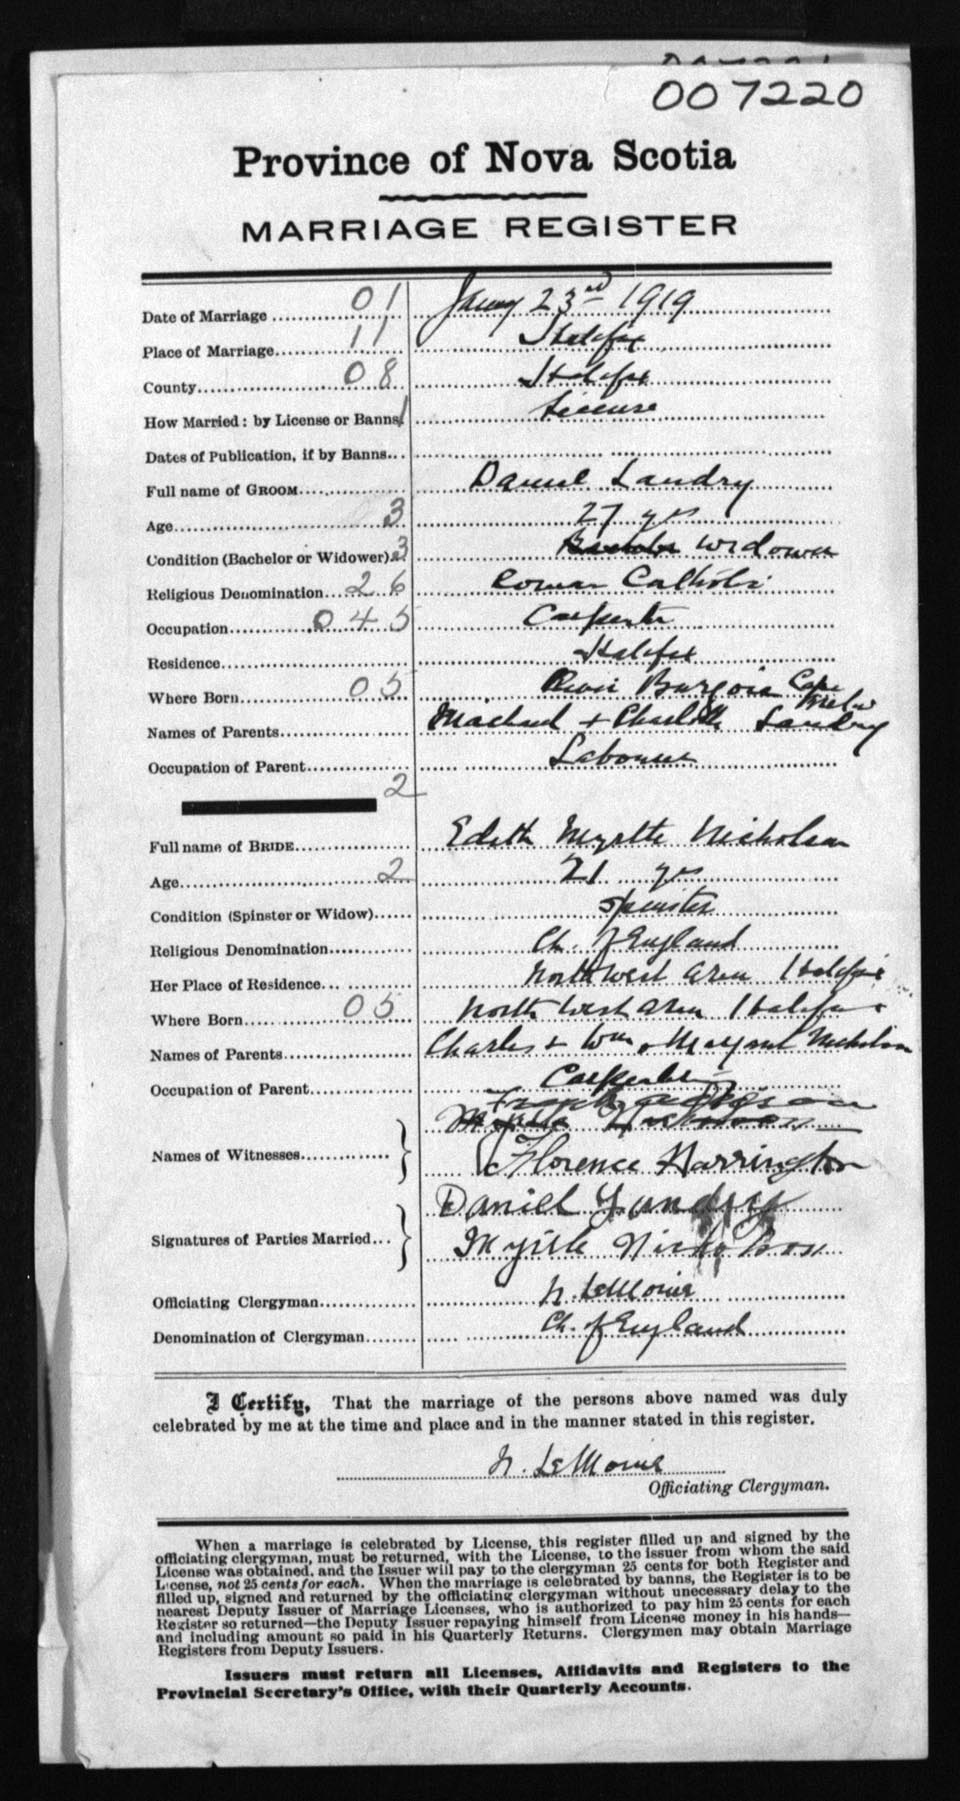 007220
Province of Nova Scotia
MARRIAGE REGISTER
Date of Marriage 01 Jany 23rd 1919
Place of Marriage 11 Halifax
County 08 Halifax
How Married: by License or Banns 1 License
Dates of Publication, if by Banns
Full name of GROOM Daniel Landry
Age 3 27 yrs
Condition (Bachelor or Widower) 3 Bachelor Widower
Religious Denomination 26 Roman Catholic
Occupation 045 Carpenter
Residence Halifax
Where Born 05 River Burgois Cape Breton
Names of Parents Michael + Charlotte Landry
Occupation of Parent Labourer
2
Full name of BRIDE Edith Myrtle Nicholson
Age 2 21 yrs
Condition (Spinster or Widow) Spinster
Religious Denomination Ch. of England
Her Place of Residence North West Arm Halifax
Where Born 05 North West Arm Halifax
Names of Parents Charles + Wm + Margaret Nicholson
Occupation of Parent Carpenter
Names of Witnesses
Florence Harrington
Signatures of Parties Married Daniel Landry
Myrtle Nicholson
Officiating Clergyman N. LeMoine
Denomination of Clergyman Ch. of England
I Certify, That the marriage of the persons above named was duly
celebrated by me at the time and place and in the manner stated in this register.
N. LeMoine
Officiating Clergyman.
When a marriage is celebrated by License, this register filled up and signed by the
officiating clergyman, must be returned, with the License, to the issuer from whom the said
License was obtained, and the Issuer will pay to the clergyman 25 cents for both Register and
License, not 25 cents for each. When the marriage is celebrated by banns, the Register is to be
filled up, signed and returned by the officiating clergyman without unecessary delay to the
nearest Deputy Issuer of Marriage Licenses, who is authorized to pay him 25 cents for each
Register so returned—the Deputy Issuer repaying himself from License money in his hands—
and including amount so paid in his Quarterly Returns. Clergymen may obtain Marriage
Registers from Deputy Issuers.
Issuers must return all Licenses, Affidavits and Registers to the
Provincial Secretary's Office, with their Quarterly Accounts.